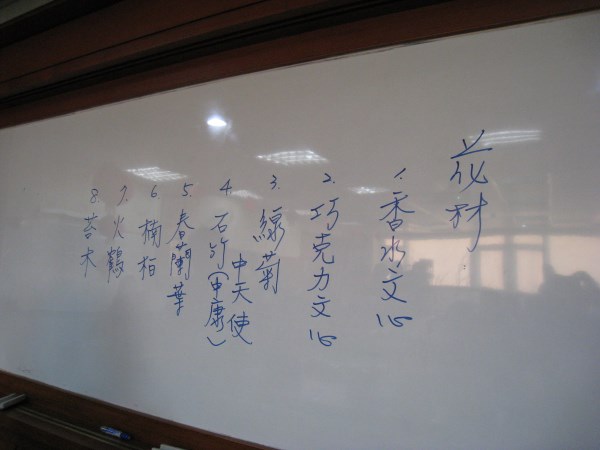 花材
1. 香水文心
2. 巧克力文心
3. 線菊
4. 石竹(中天使
(申康)
5. 春蘭葉
6. 楠柏
7. 火鶴
8. 苔木